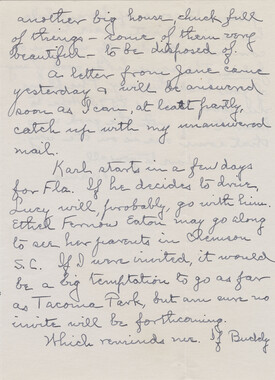 another big house, chuck full
of things - some of them very
beautiful - to be disposed of.
A letter from Jane came
yesterday & will be answered
soon as I can, at least partly,
catch up with my unanswered
mail.
Karl starts in a few days
for Fla. If he decides to drive,
Lucy will, probably, go with him.
Ethel Fernow Eaton may go along
to see her parents in Clemson
S.C. If I were invited, it would
be a big temptation to go as far
as Tacoma Park, but am sure no
invite will be forthcoming.
Which reminds me. If Buddy